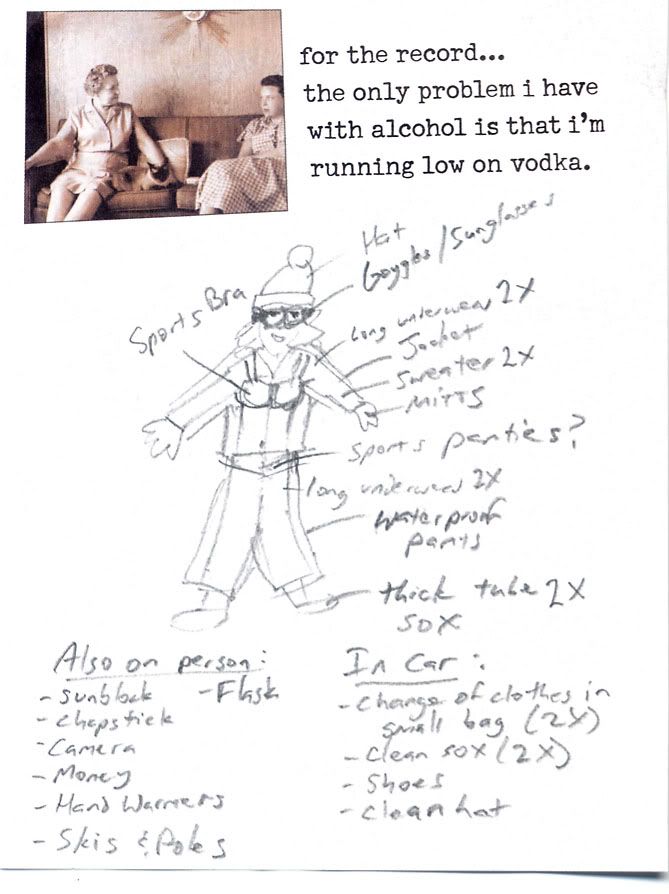 for the record...
the only problem i have
with alcohol is that i'm
running low on vodka.
Hat
Goggles/Sunglasses
Sports Bra
Long underwear 2X
Jacket
Sweater 2X
Mitts
Sports panties?
long underwear 2X
Waterproof
pants
thick tube 2X
sox
Also on person:
- Sunblock - Flask
- Chapstick
- Camera
- Money
- Hand Warmers
- Skis & Poles
In Car:
- Change of clothes in
small bag (2X)
- Clean sox (2X)
- Shoes
- Clean hat